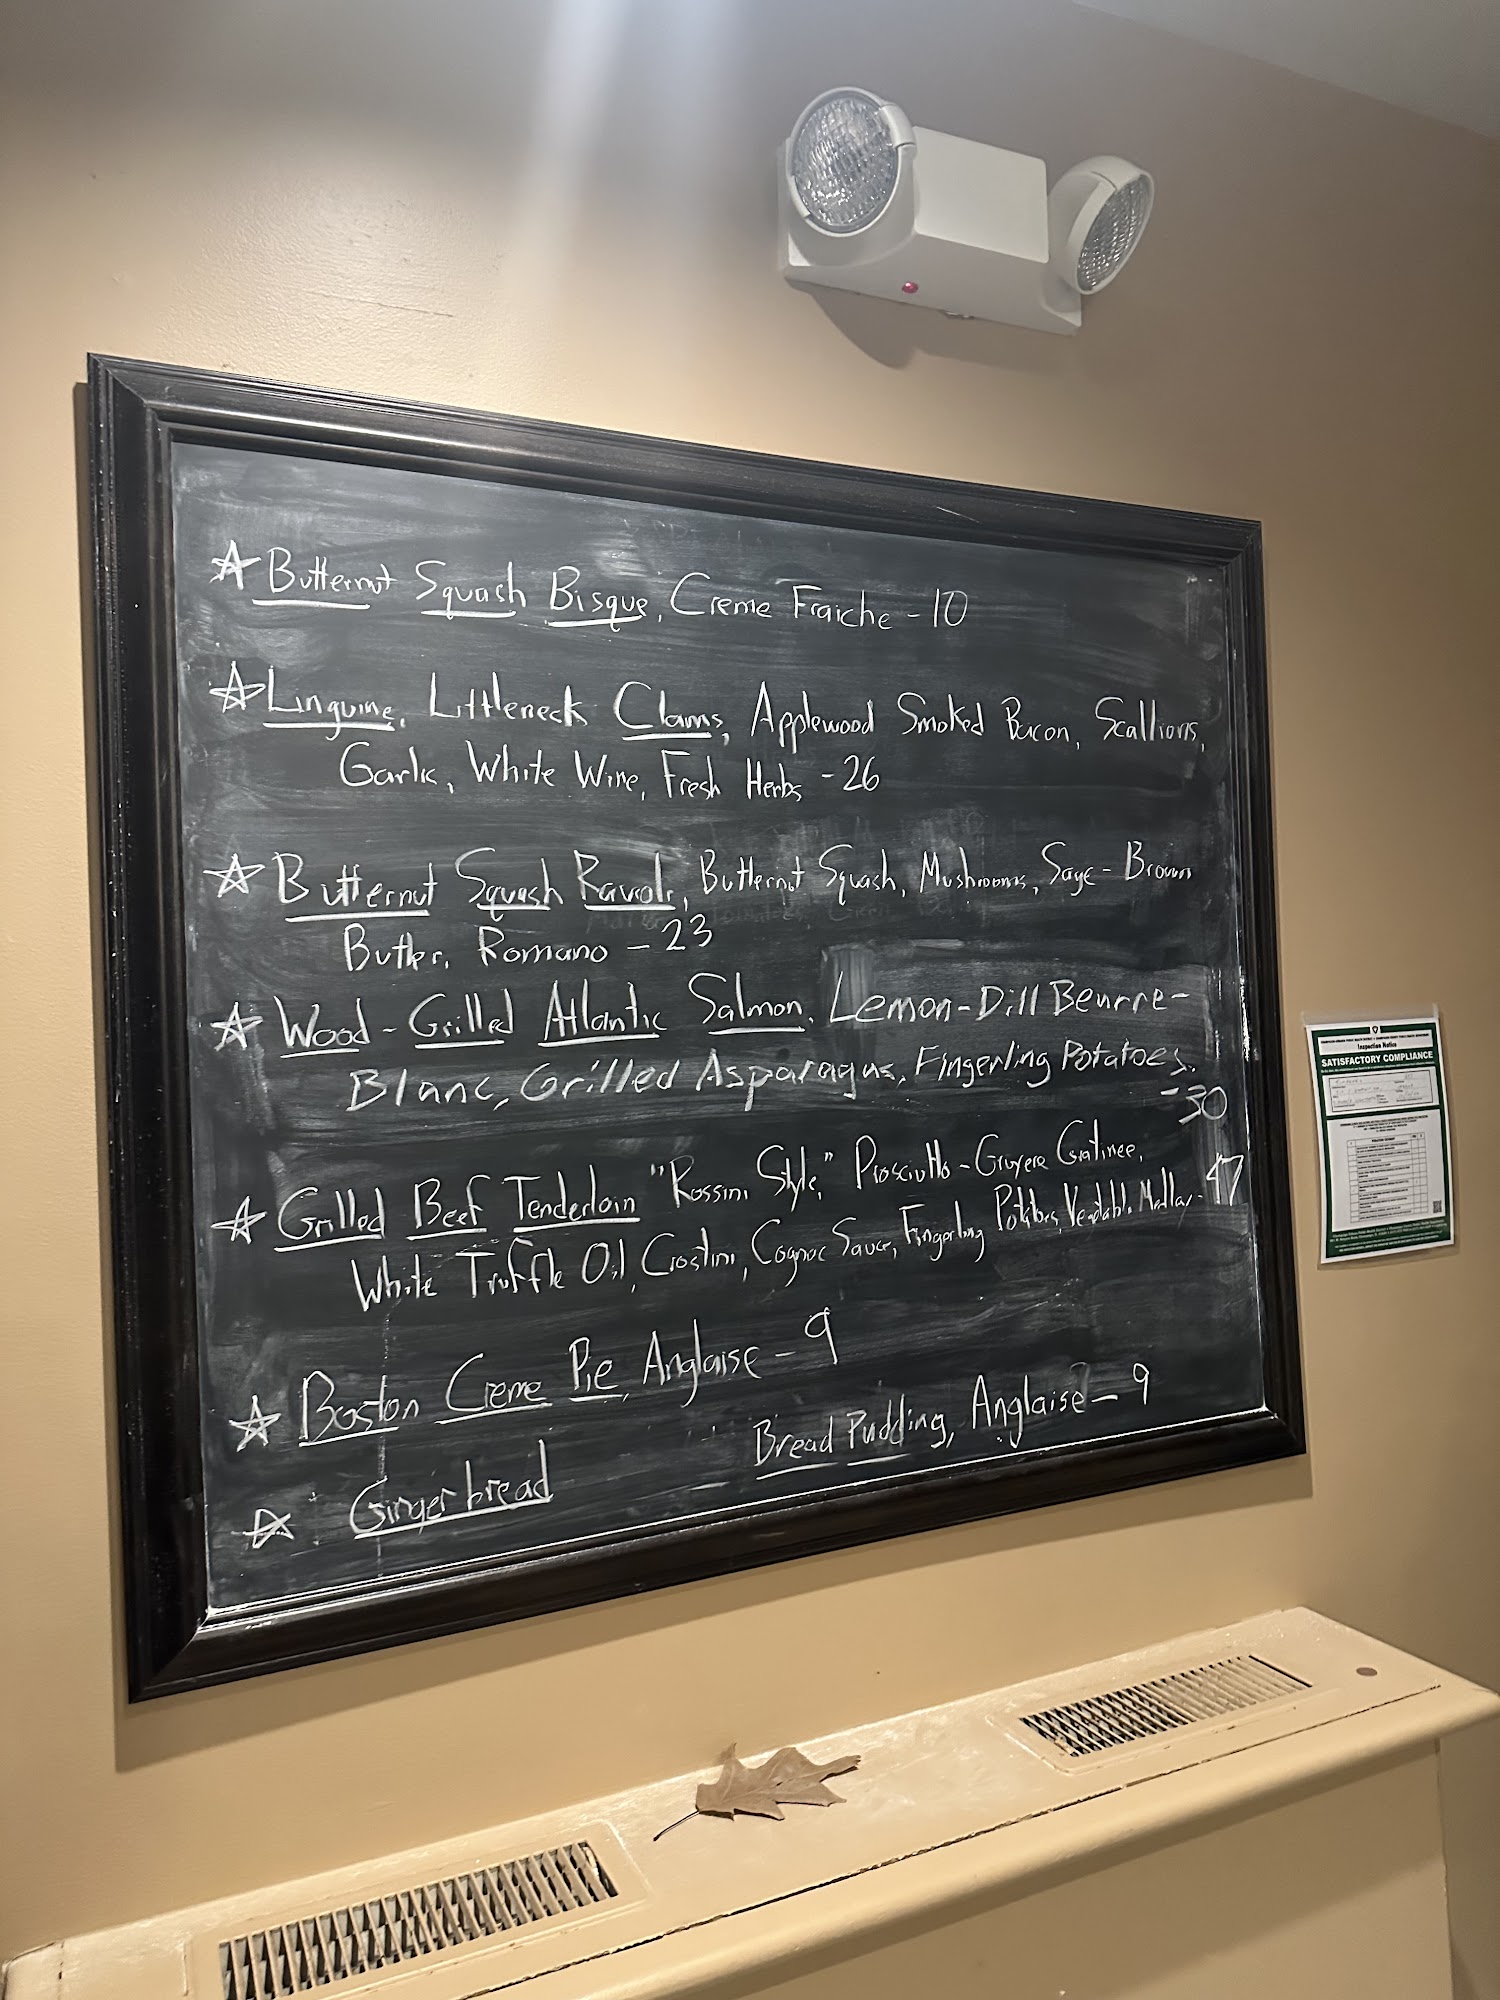 Butternut Squash Bisque, Creme Fraiche - 10
Linguine, Littleneck Clams, Applewood Smoked Bacon, Scallions,
Garlic, White Wine, Fresh Herbs - 26
Butternut Squash Ravioli, Butternut Squash, Mushrooms, Sage - Brown
Butter, Romano - 23
Wood - Grilled Atlantic Salmon, Lemon - Dill Beurre -
Blanc, Grilled Asparagus, Fingerling Potatoes,
- 30
Grilled Beef Tenderloin "Rossini Style," Prosciutto - Gruyere Gratinee,
White Truffle Oil, Crostini, Cognac Sauce, Fingerling Potatoes, Vegetable Medley - 47
Boston Creme Pie, Anglaise - 9
Gingerbread Bread Pudding, Anglaise - 9
Inspection Notice
SATISFACTORY COMPLIANCE